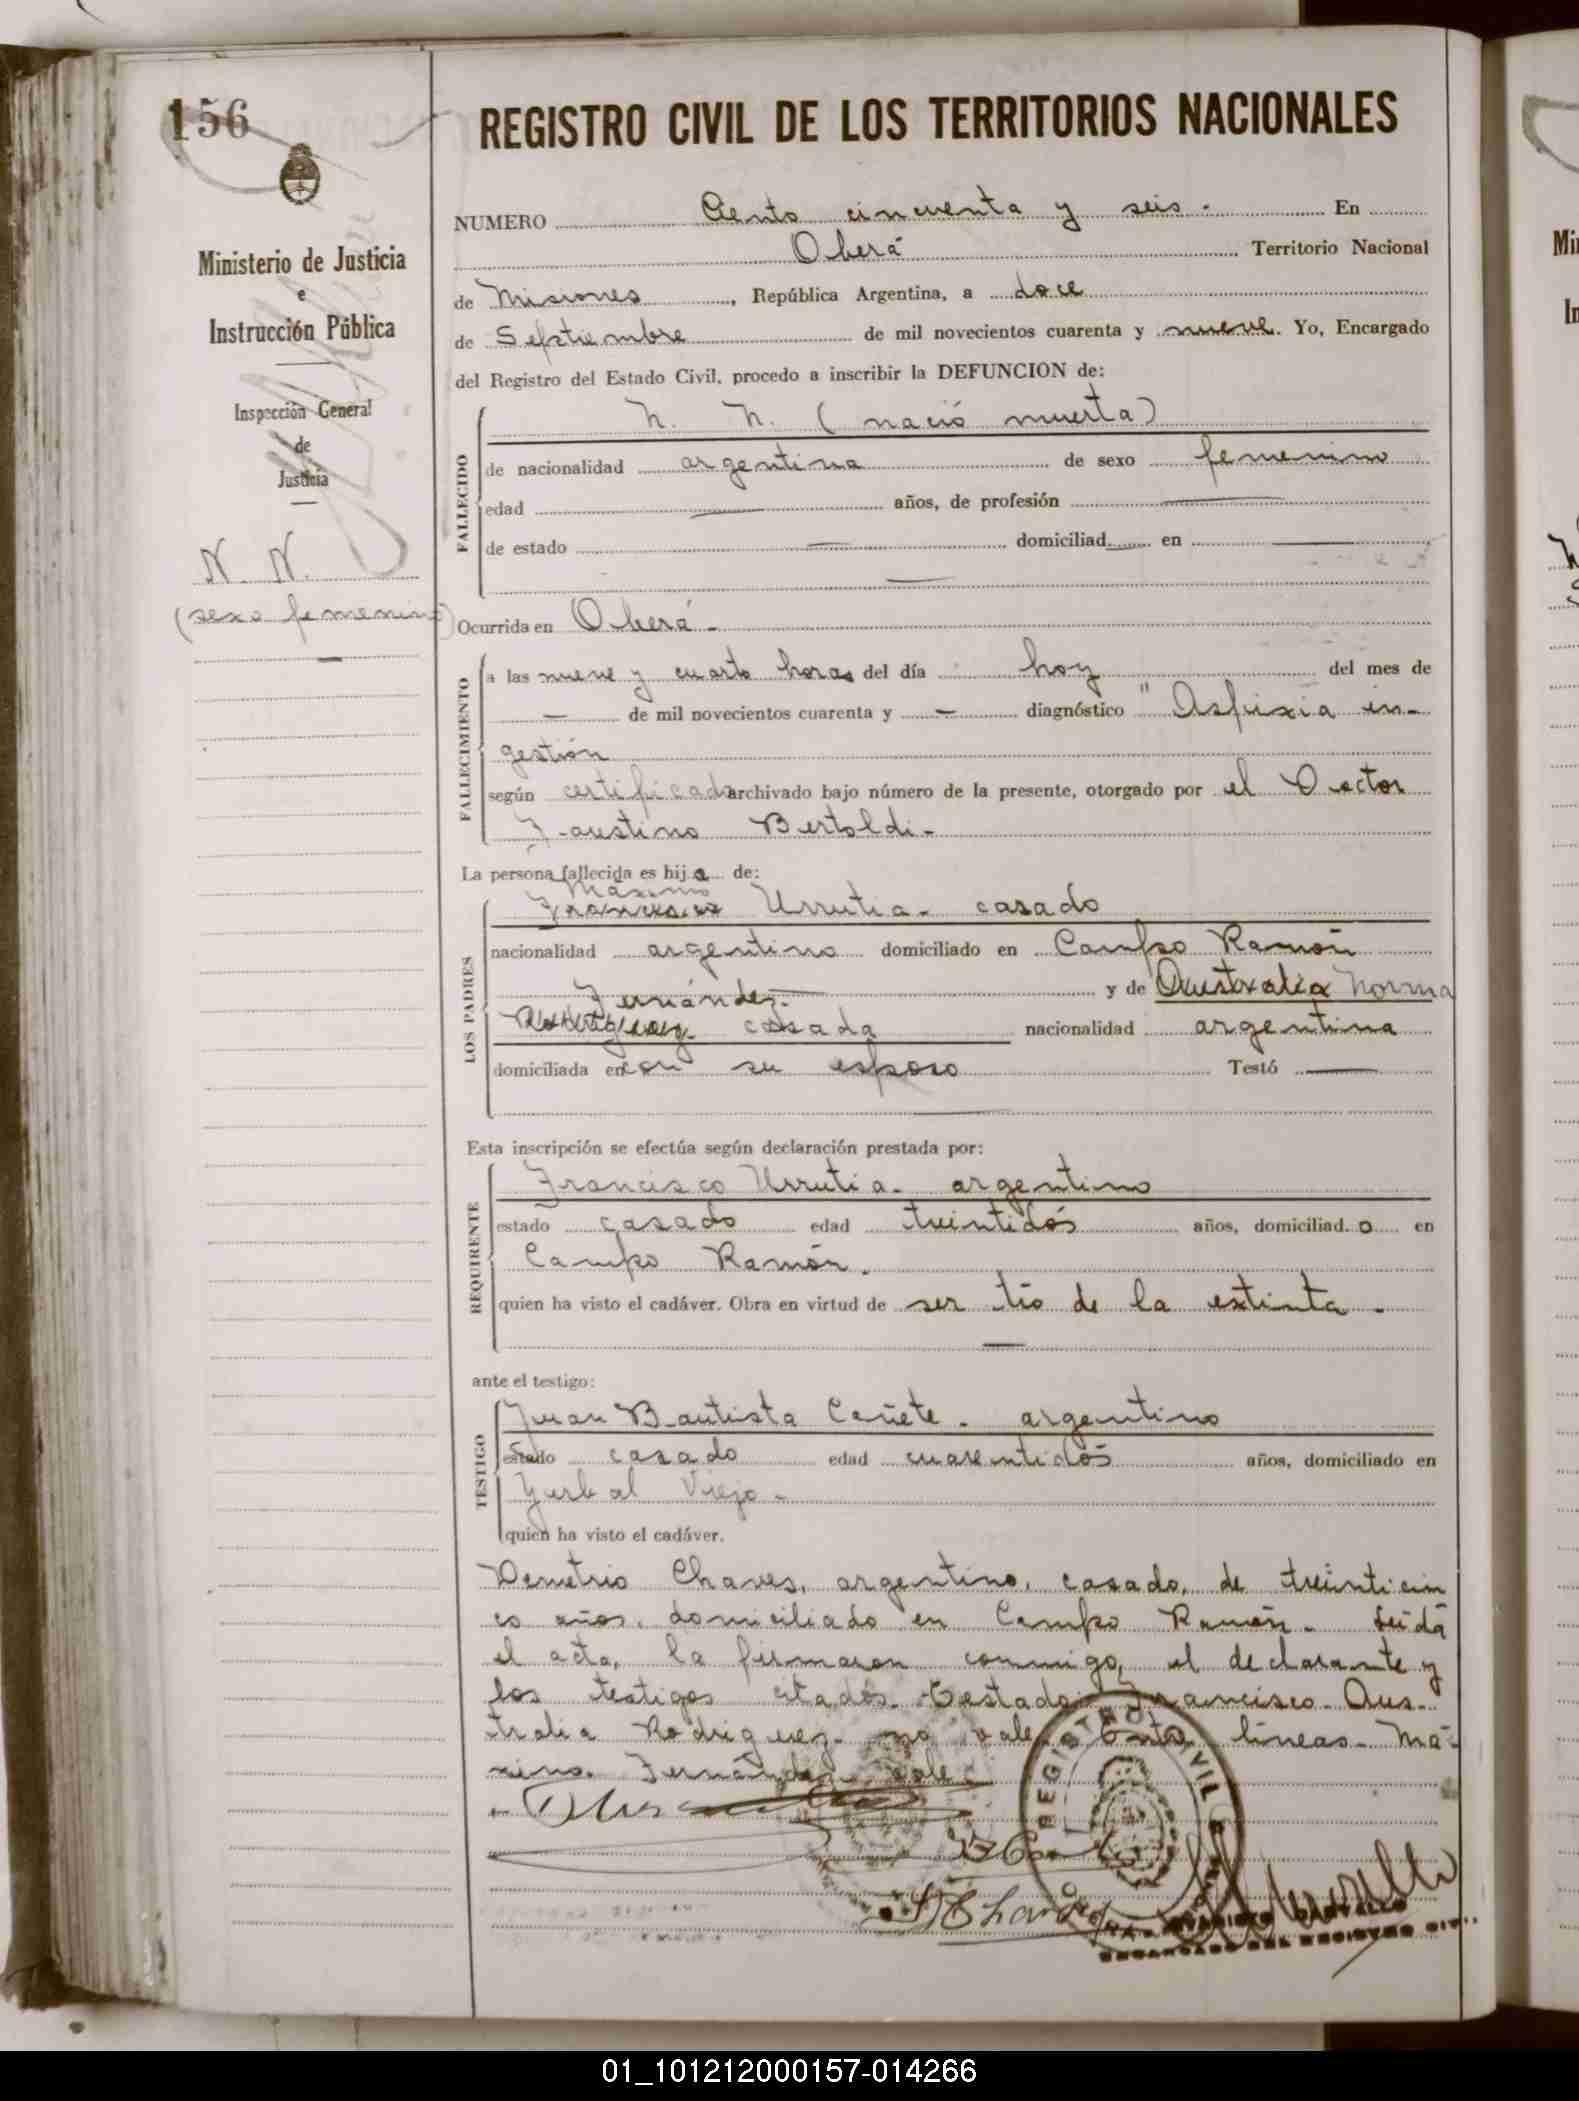 156
REGISTRO CIVIL DE LOS TERRITORIOS NACIONALES
Ministerio de Justicia
e
Instrucción Pública
Inspección General
de
Justicia
N. N.
(sexo femenino)
NUMERO Ciento cincuenta y seis. En
Oberá Territorio Nacional
de Misiones, República Argentina, a doce
de Septiembre de mil novecientos cuarenta y nueve. Yo, Encargado
del Registro del Estado Civil, procedo a inscribir la DEFUNCION de:
FALLECIDO
N. N. (nació muerta)
de nacionalidad argentina de sexo femenino
edad — años, de profesión —
de estado — domiciliad en —
Ocurrida en Oberá.
FALLECIMIENTO
a las nueve y cuarto horas del día hoy del mes de
— de mil novecientos cuarenta y — diagnóstico "Asfixia in-
gestión
según certificado archivado bajo número de la presente, otorgado por el Doctor
Faustino Bertoldi.
La persona fallecida es hija de:
LOS PADRES
Máximo
Francisco Urrutia. casado
nacionalidad argentino domiciliado en Campo Ramón
y de Australia Norma
Fernández.
Rodriguez casada nacionalidad argentina
domiciliada en con su esposo Testó —
Esta inscripción se efectúa según declaración prestada por:
REQUIRENTE
Francisco Urrutia. argentino
estado casado edad treintidós años, domiciliad o en
Campo Ramón.
quien ha visto el cadáver. Obra en virtud de ser tío de la extinta.
ante el testigo:
TESTIGO
Juan Bautista Cañete. argentino
estado casado edad cuarentidós años, domiciliado en
Yerbal Viejo.
quien ha visto el cadáver.
Demetrio Chaves, argentino, casado, de treinticin
co años, domiciliado en Campo Ramón. Leída
el acta, la firmaron conmigo, el declarante y
los testigos citados. Testado: Francisco. Aus-
tralia Rodriguez. no vale. Entre líneas. Má-
ximo. Fernández vale.
REGISTRO CIVIL
ENCARGADO DEL REGISTRO CIVIL
01_101212000157-014266